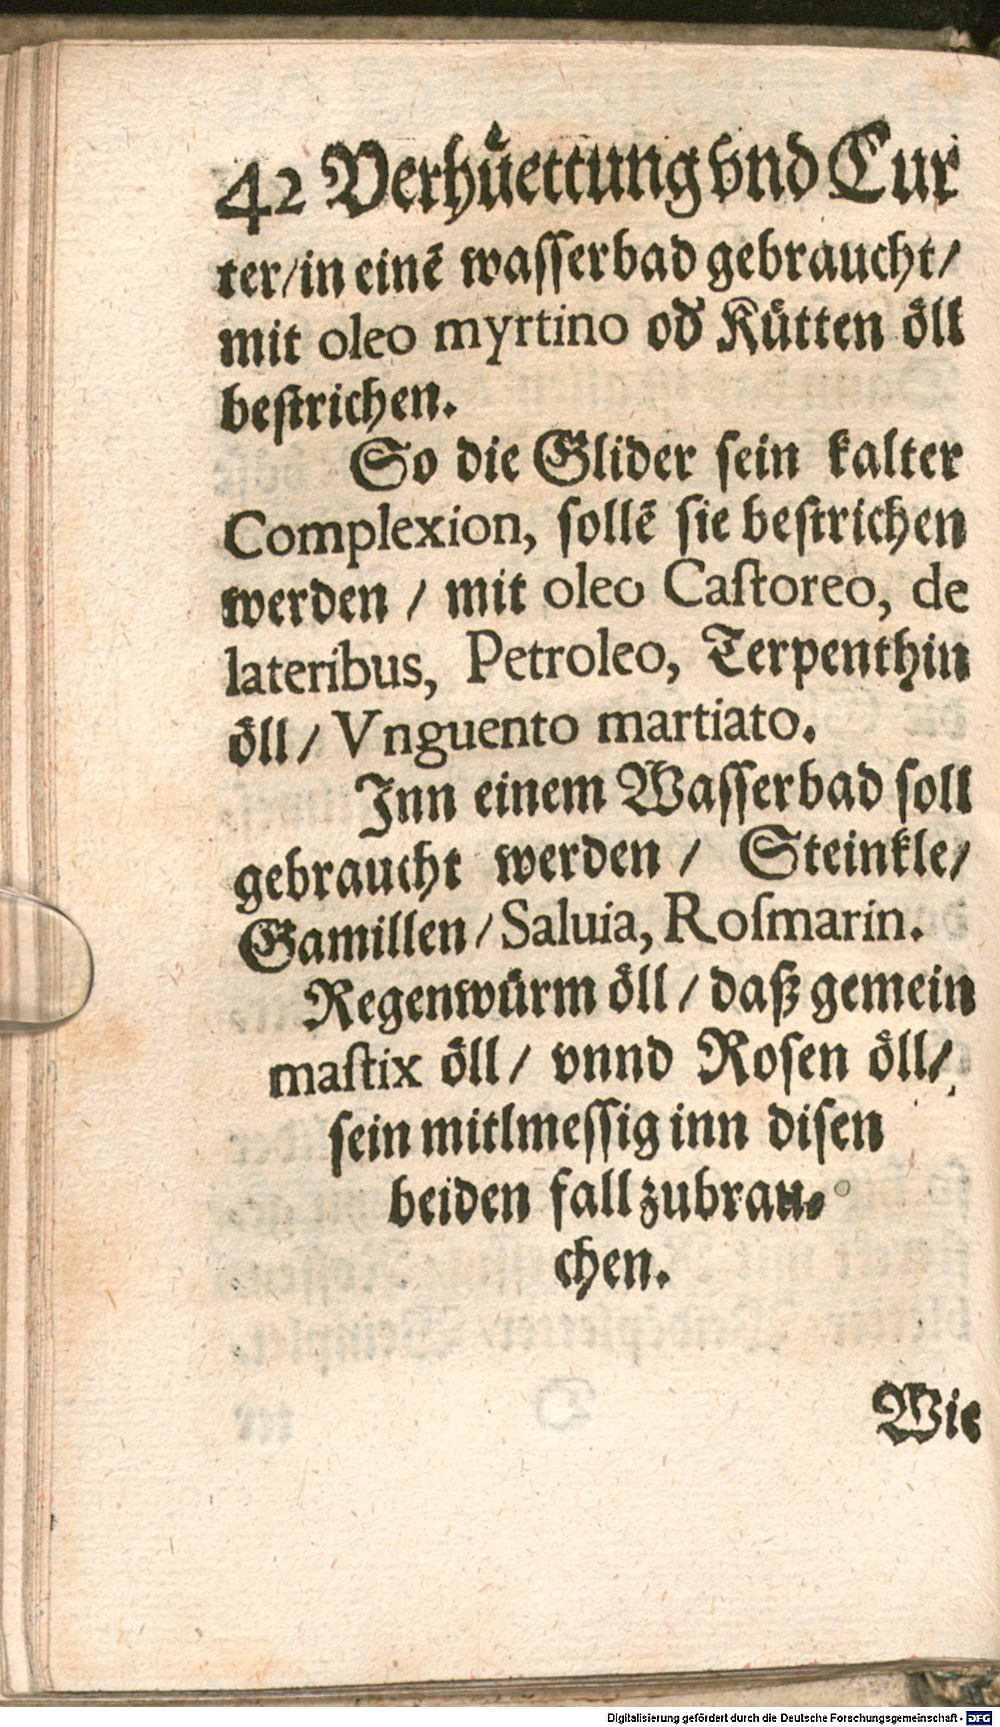 42 Verhuͤettung vnd Cur
ter/in einẽ wasserbad gebraucht/
mit oleo myrtino od' Kuͤtten oͤll
bestrichen.
So die Glider sein kalter
Complexion, sollẽ sie bestrichen
werden / mit oleo Caſtoreo, de
lateribus, Petroleo, Terpenthin
oͤll / Vnguento martiato.
Jnn einem Wasserbad soll
gebraucht werden / Steinkle/
Gamillen / Saluia, Roſmarin.
Regenwuͤrm oͤll / daß gemein
maſtix oͤll / vnnd Rosen oͤll/
sein mitlmessig inn disen
beiden fall zubrau-
chen.
Wie
Digitalisierung gefördert durch die Deutsche Forschungsgemeinschaft - DFG